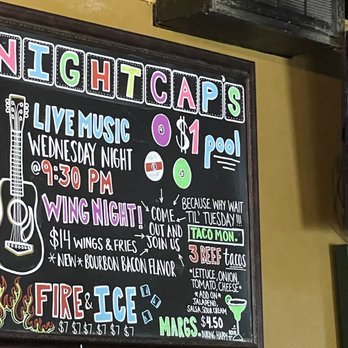 NIGHTCAP'S
LIVE MUSIC
WEDNESDAY NIGHT
@ 9:30 PM
$1 pool
WING NIGHT!
$14 WINGS & FRIES
*NEW* BOURBON BACON FLAVOR
COME
OUT AND
JOIN US
BECAUSE WHY WAIT
'TIL' TUESDAY!!!
TACO MON.
3 BEEF tacos
*LETTUCE, ONION,
TOMATO, CHEESE*
*ADD ON*
JALAPENO,
SALSA, SOUR CREAM
FIRE & ICE
$7 $7 $7 $7 $7 $7
MARGS. $4.50
DURING HAPPY